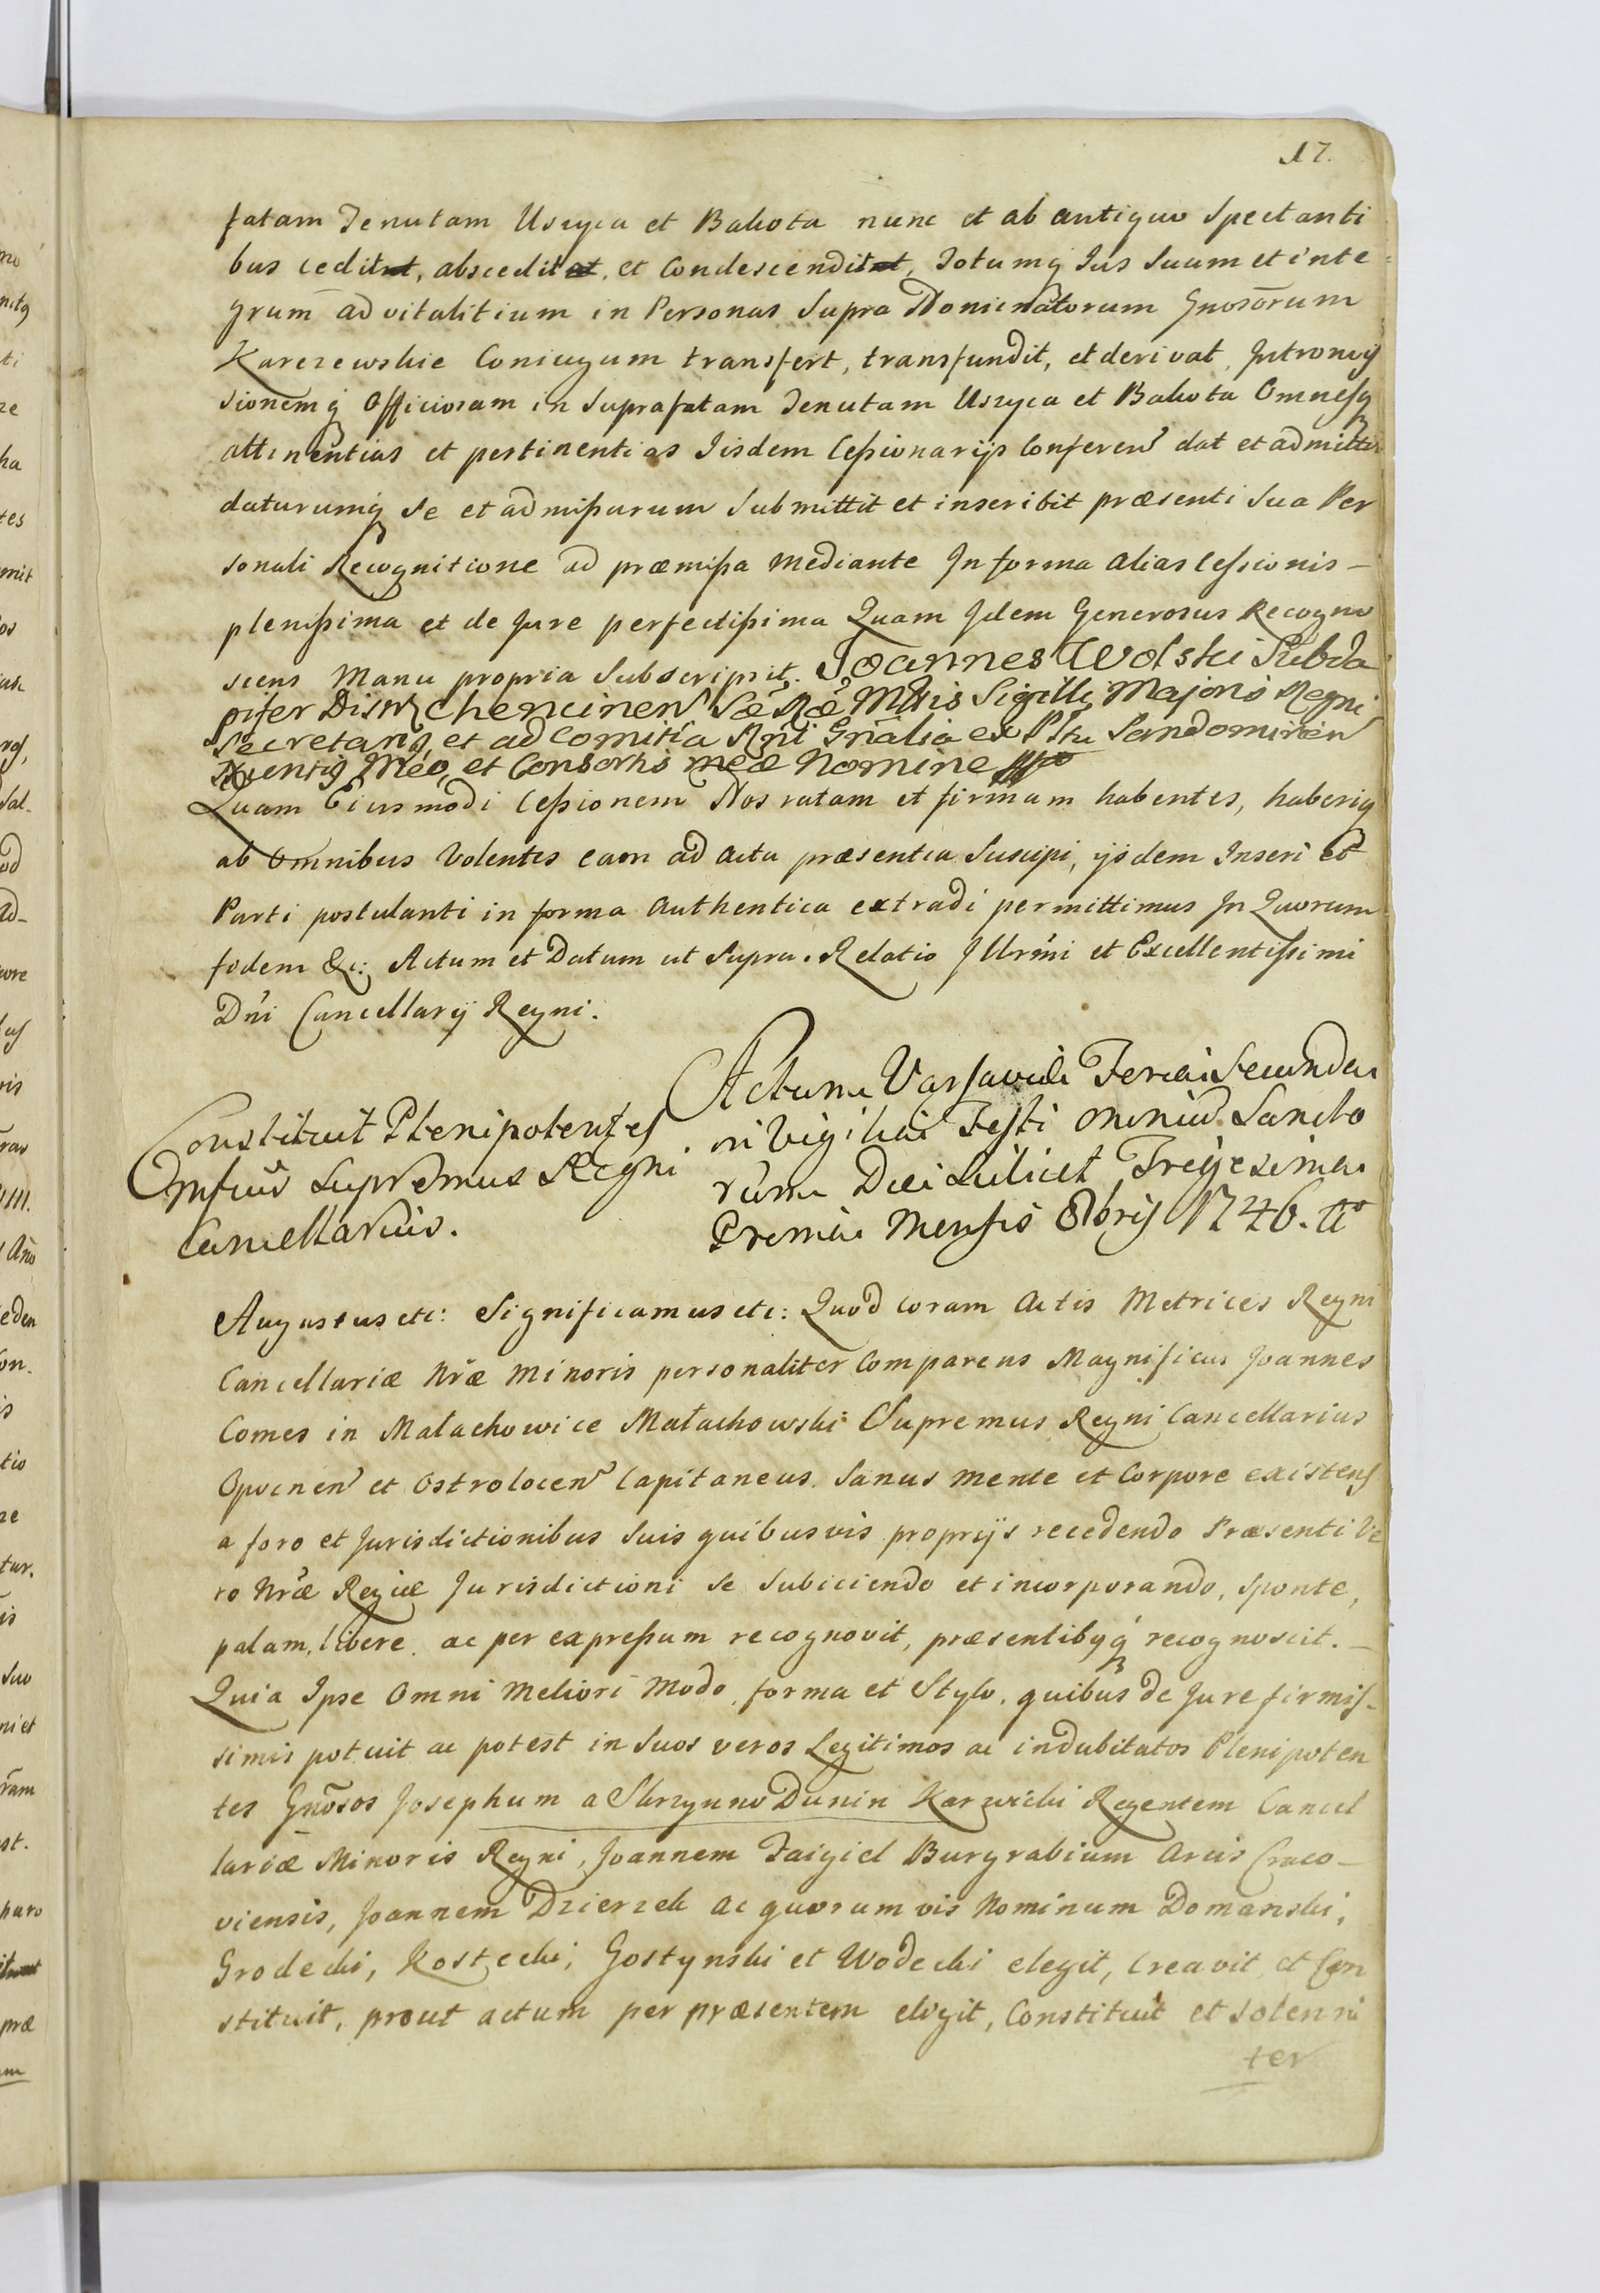 17.
fatam Tenutam Uszyca et Bakota nunc et ab antiquo Spectanti
bus cedit, abscedit, et Condescendit, Totumq Ius Suum et inte
grum advitalitium in Personas Supra Nominatorum Gnosorum
Karczewskie Coniugum transfert, transfundit, et derivat, Intromis
sionemq Officiosam in Suprafatam Tenutam Uszyca et Bakota Omnesq
attinentias et pertinentias Iisdem Cessionarijs Conferen dat et admittit
daturumq Se et admissurum Submittit et inscribit præsenti Sua Per
sonali Recognitione ad præmissa mediante In forma alias Cessionis –
plenissima et de Jure perfectissima Quam Idem Generosus Recogno
scens Manu propria Subscripsit. Joannes Wolski Subda
pifer Chencinen Sæ Ræ Mttis Sigilli Majoris Regni
Secretariq et ad Comitia Rni Gnalia ex Pltu Sandomirien
Meo, et Consortis meæ Nomine
Quam Eiusmodi Cessionem Nos ratam et firmam habentes, haberiq
ab omnibus Volentes eam ad Acta præsentia Suscipi, ijsdem Inseri et
Parti postulanti in forma Authentica extradi permittimus In Quorum
fidem &c: Actum et Datum ut Supra. Relatio Illrmi et Excellentissimi
Dni Cancellarij Regni.
Constituit Plenipotentes
Omsius Supremus Regni
Cancellarius.
Actum Varsaviæ Feria Secunda
in Vigilia Festi Omniu Sancto
rum Die Scilicet Trigesima
Prima Mensis 8bris 1746. Ao
Augustus etc: Significamus etc: Quod coram Actis Metrices Regni
Cancellariæ Nræ Minoris personaliter Comparens Magnificus Joannes
Comes in Małachowice Małachowski Supremus Regni Cancellarius
Opocnen et Ostrolocen Capitaneus. Sanus mente et Corpore existens
a foro et Jurisdictionibus Suis quibusvis proprijs recedendo Præsenti Ve
ro Nræ Regiæ Jurisdictioni se subiiciendo et incorporando, sponte,
palam, libere, ac per expressum recognovit, præsentibusq recognoscit. –
Quia Ipse Omni Meliori Modo, forma et Stylo, quibus de Jure firmis-
simis potuit ac potest in Suos veros Legitimos ac indubitatos Plenipoten
tes Gnosos Josephum a Skrzynno Dunin Karwicki Regentem Cancel
lariæ Minoris Regni, Joannem Faigiel Burgrabium Arcis Craco –
viensis, Joannem Dzierzek ac quorumvis Nominum Domanski,
Grodecki, Kostecki, Gostynski et Wodecki elegit, Creavit et Con
stituit, prout actum per præsentem elegit, Constituit et solenni
ter